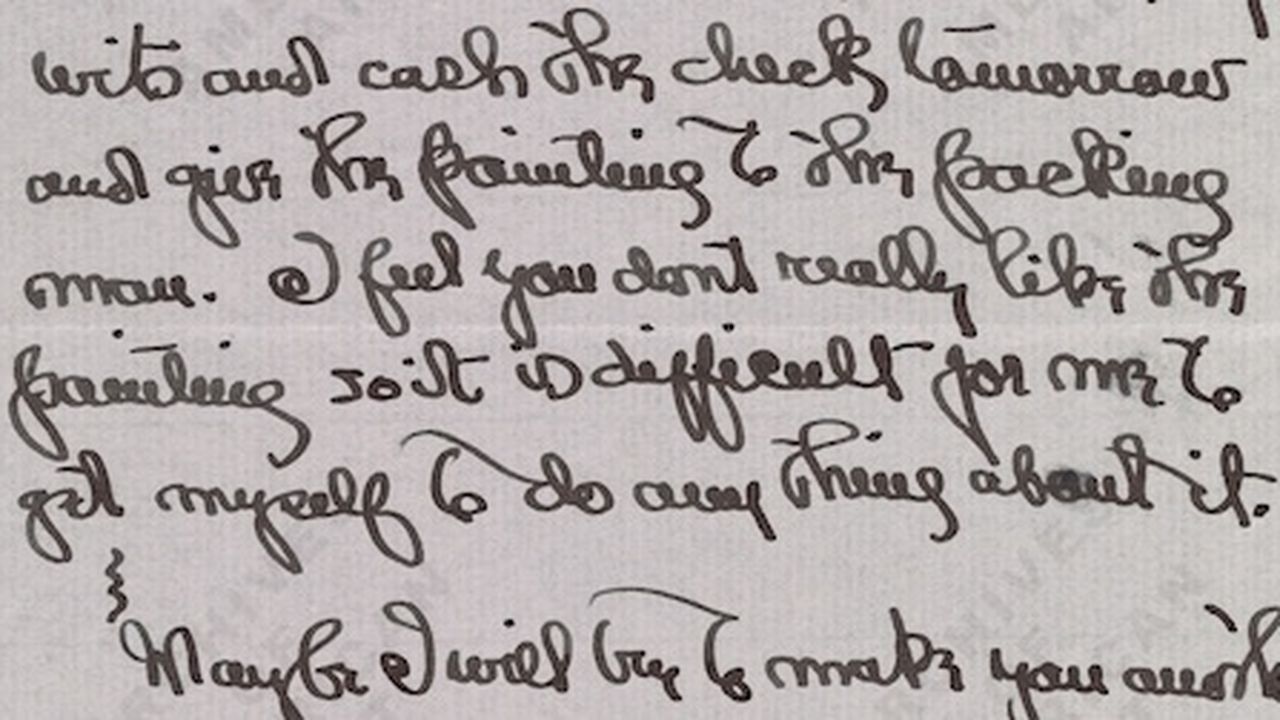 wits and cash the check tomorrow
and give the painting to the packing
man. I feel you dont really like the
painting so it is difficult for me to
get myself to do any thing about it.
Maybe I will try to make you